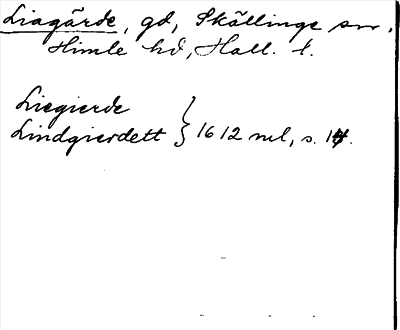 Liagärde, gd, Skällinge sn,
Himle hd, Hall. l.
Liegierde
Lindgierdett } 1612 ml, s. 14.